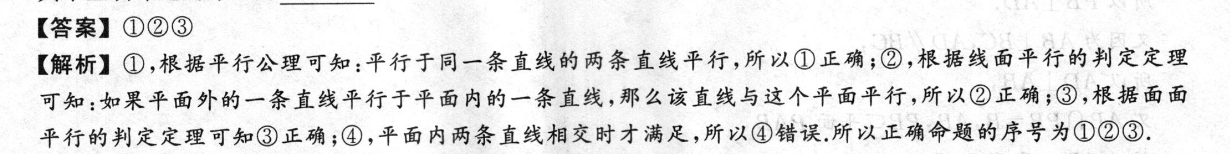 【答案】①②③
【解析】①,根据平行公理可知:平行于同一条直线的两条直线平行,所以①正确;②,根据线面平行的判定定理
可知:如果平面外的一条直线平行于平面内的一条直线,那么该直线与这个平面平行,所以②正确;③,根据面面
平行的判定定理可知③正确;④,平面内两条直线相交时才满足,所以④错误.所以正确命题的序号为①②③.